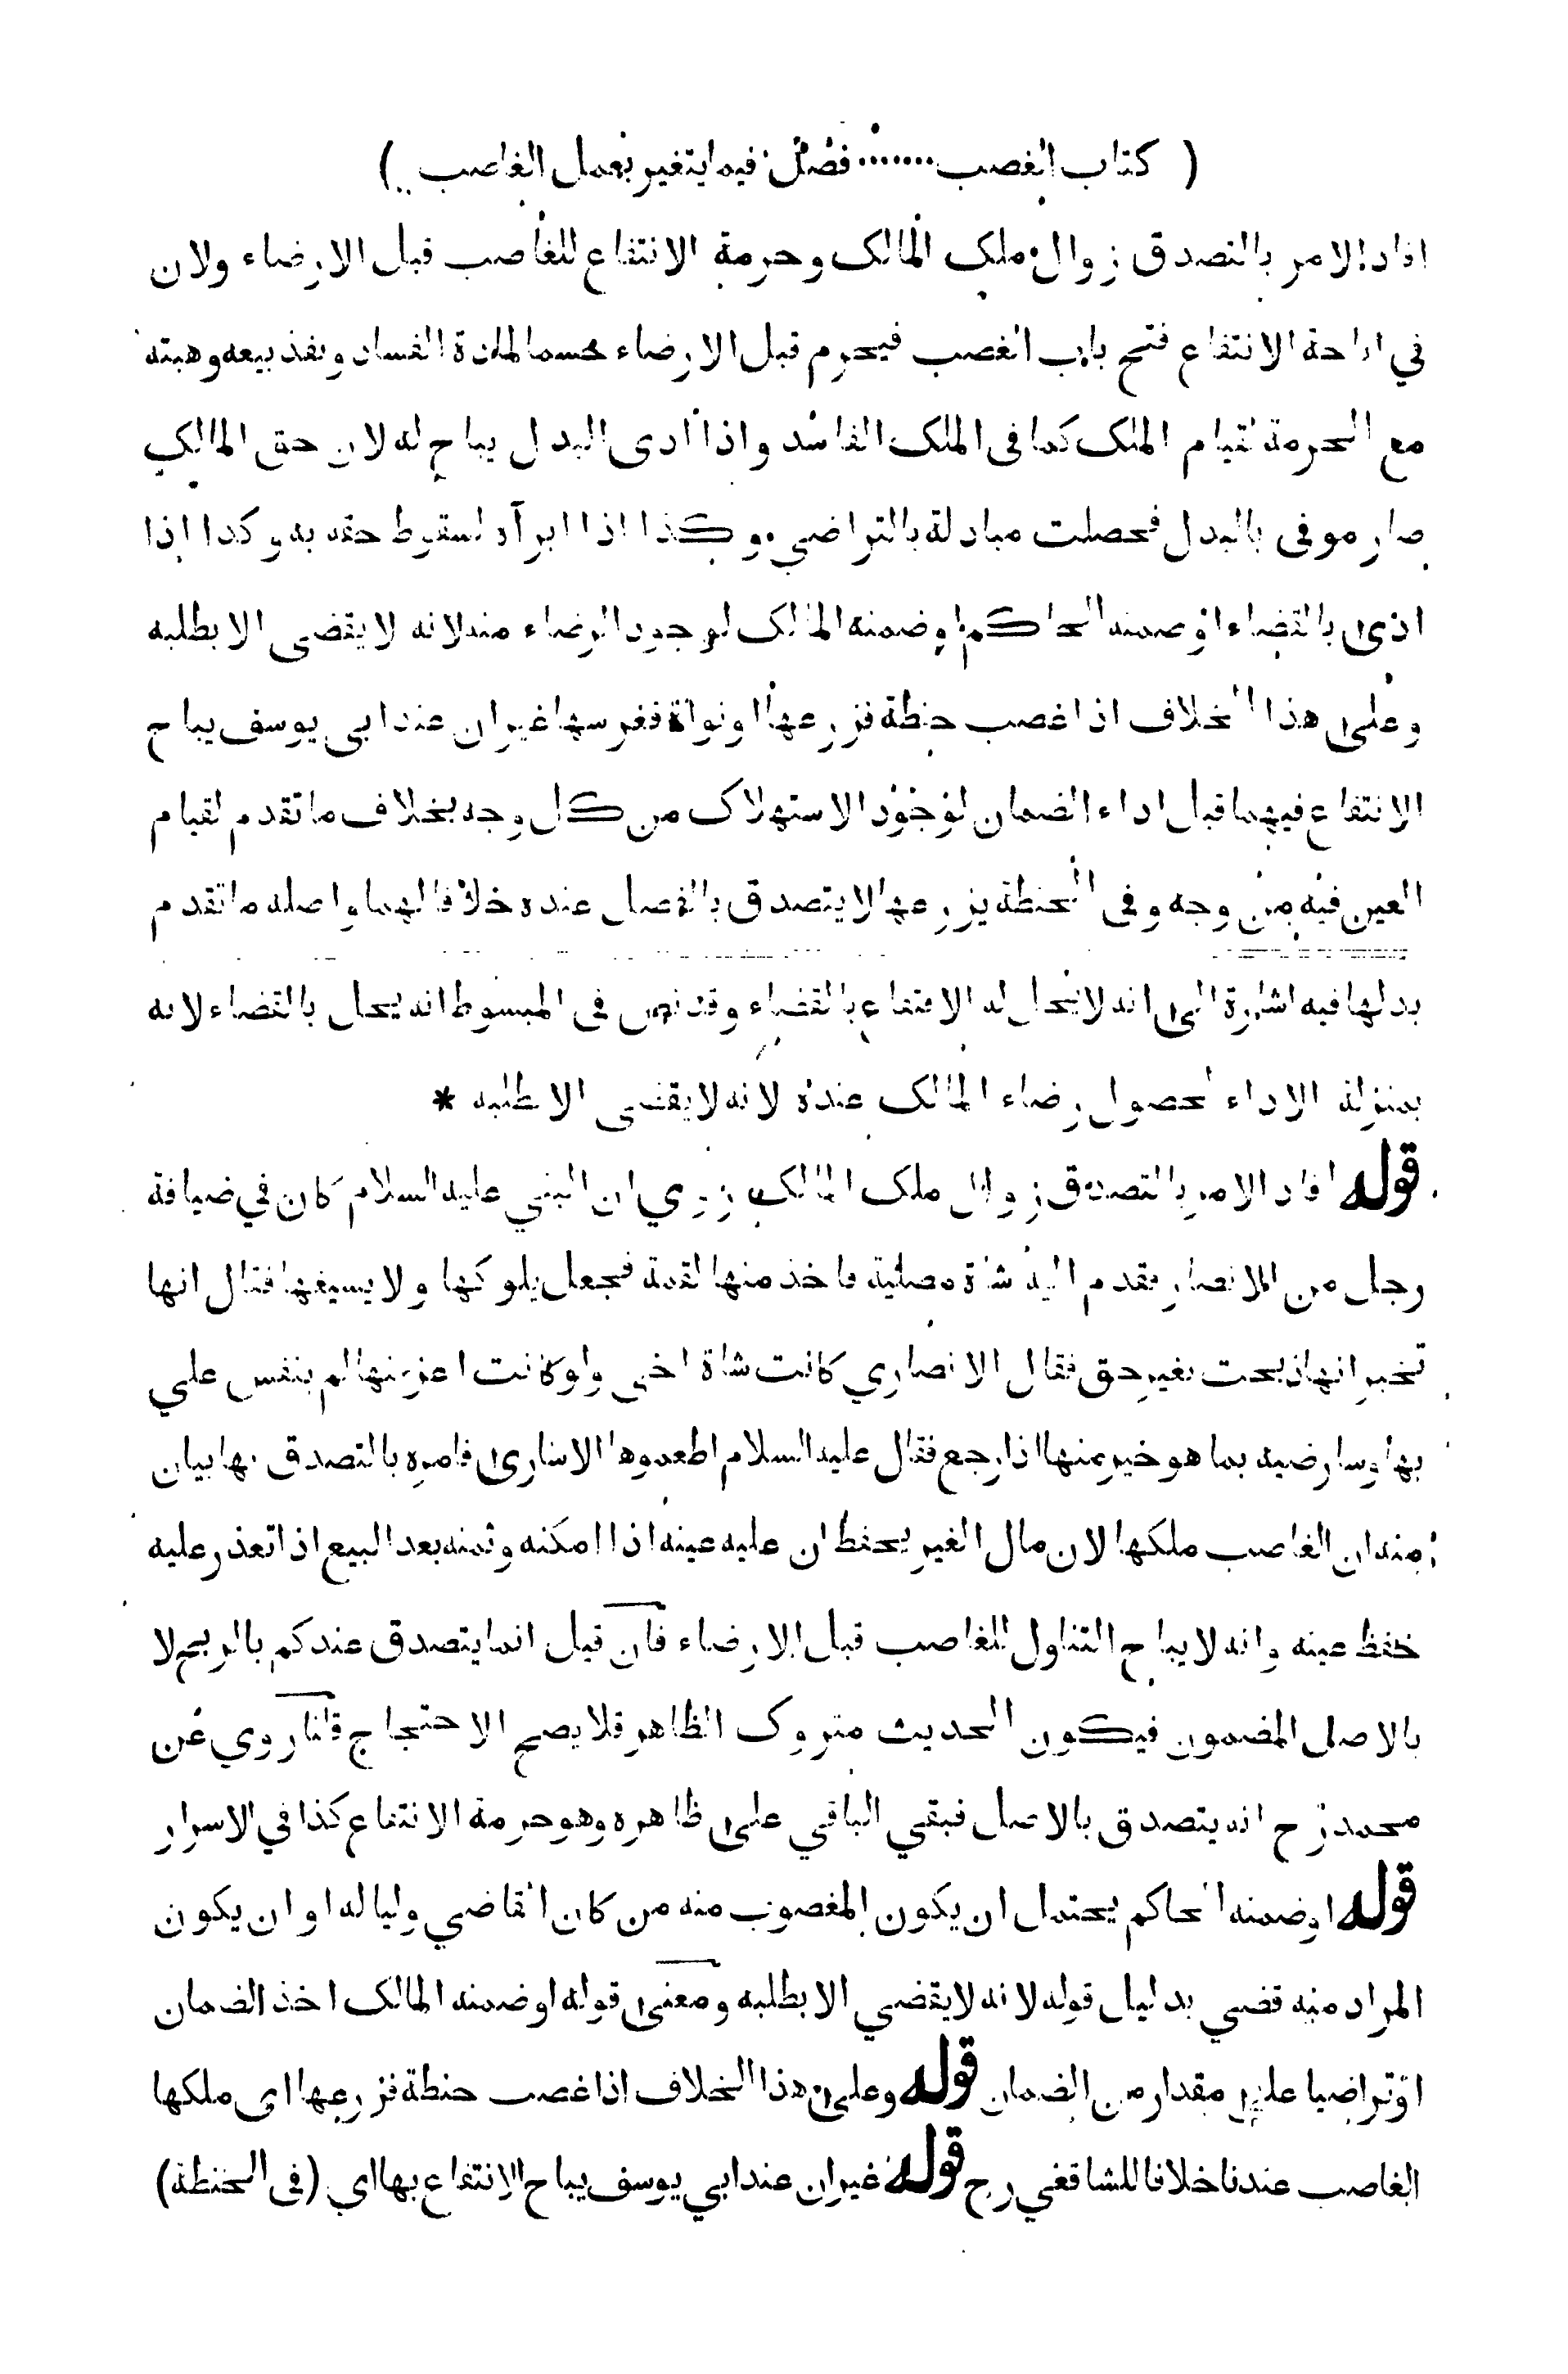 ( كتاب الغصب ········ فصل فيما يتغير بعمل الغاصب )
افاد الامر بالتصدق زوال ملك المالك وحرمة الانتفاع للغاصب قبل الارضاء ولان
في اباحة الانتفاع فتح باب الغصب فيحرم قبل الارضاء حسما لمادة الفساد ونفذ بيعه وهبته
مع الحرمة لقيام الملك كما فى الملك الفاسد واذا ادى البدل يباح له لان حق المالك
صار موفى بالبدل فحصلت مبادلة بالتراضي وكذا اذا ابرأه لسقوط حقه به وكذا اذا
ادى بالقضاء او ضمنه الحاكم او ضمنه المالك لوجود الرضاء منه لانه لا يقضى الا بطلبه
وعلى هذا الخلاف اذا غصب حنطة فزرعها او نواة فغرسها غير ان عند ابى يوسف يباح
الانتفاع فيهما قبل اداء الضمان لوجود الاستهلاك من كل وجه بخلاف ما تقدم لقيام
العين فيه من وجه وفى الحنطة يزرعها لا يتصدق بالفضل عنده خلافا لهما واصله ما تقدم
بدلها فيه اشارة الى انه لا يحل له الانتفاع بالقضاء وقد نص فى المبسوط انه يحل بالقضاء لانه
بمنزلة الاداء لحصول رضاء المالك عنده لانه لا يقضى الا بطلبه *
قوله افاد الامر بالتصدق زوال ملك المالك روي ان النبي عليه السلام كان في ضيافة
رجل من الانصار فقدم اليه شاة مصلية فاخذ منها لقمة فجعل يلوكها ولا يسيغها فقال انها
تخبر انها ذبحت بغير حق فقال الانصاري كانت شاة اخي ولو كانت اعز منها لم ينفس علي
بها وسارضيه بما هو خير منها اذا رجع فقال عليه السلام اطعموها الاسارى فامره بالتصدق بها بيان
منه ان الغاصب ملكها لان مال الغير يحفظ ان عليه عينه اذا امكنه وثمنه بعد البيع اذا تعذر عليه
حفظ عينه وانه لا يباح التناول للغاصب قبل الارضاء فان قيل انما يتصدق عندكم بالربح لا
بالاصل المضمون فيكون الحديث متروك الظاهر فلا يصح الاحتجاج قلنا روي عن
محمد رح انه يتصدق بالاصل فبقي الباقي على ظاهره وهو حرمة الانتفاع كذا في الاسرار
قوله او ضمنه الحاكم يحتمل ان يكون المغصوب منه من كان القاضي وليا له او ان يكون
المراد منه قضى بدليل قوله لانه لا يقضي الا بطلبه ومعنى قوله او ضمنه المالك اخذ الضمان
او تراضيا على مقدار من الضمان قوله وعلى هذا الخلاف اذا غصب حنطة فزرعها اي ملكها
الغاصب عندنا خلافا للشافعي رح قوله غير ان عند ابي يوسف يباح الانتفاع بها اي (فى الحنطة)